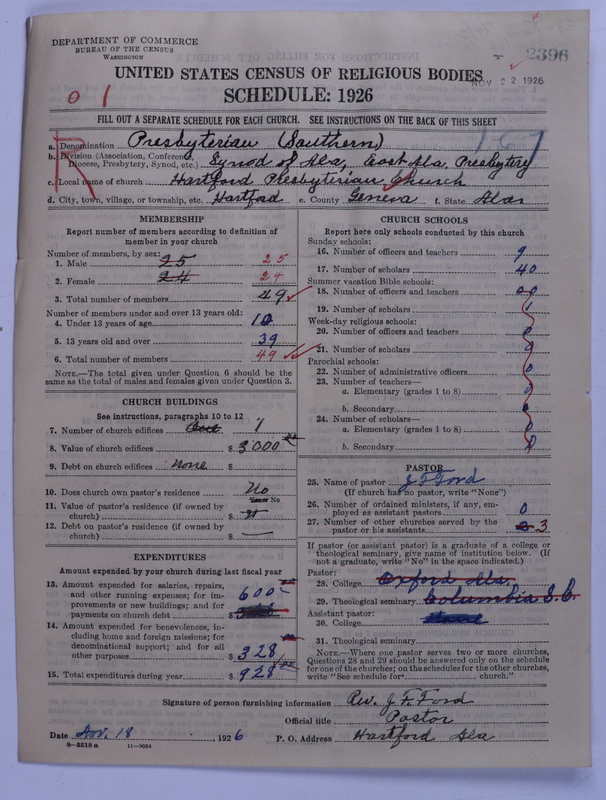 DEPARTMENT OF COMMERCE
BUREAU OF THE CENSUS
WASHINGTON
2396
UNITED STATES CENSUS OF RELIGIOUS BODIES
NOV 22 1926
SCHEDULE: 1926
0 1
FILL OUT A SEPARATE SCHEDULE FOR EACH CHURCH. SEE INSTRUCTIONS ON THE BACK OF THIS SHEET
R
167
a. Denomination Presbyterian (Southern)
b. Division (Association, Conference, Diocese, Presbytery, Synod, etc.) Synod of Ala, East Ala. Presbytery
c. Local name of church Hartford Presbyterian Church
d. City, town, village, or township, etc. Hartford e. County Geneva f. State Ala
MEMBERSHIP
Report number of members according to definition of
member in your church
Number of members, by sex:
1. Male 25 25
2. Female 24 24
3. Total number of members 49
Number of members under and over 13 years old:
4. Under 13 years of age 10
5. 13 years old and over 39
6. Total number of members 49
NOTE.—The total given under Question 6 should be
same as the total of males and females given under Question 3.
CHURCH BUILDINGS
See instructions, paragraphs 10 to 12
7. Number of church edifices 1
8. Value of church edifices $ 3000
9. Debt on church edifices None $
10. Does church own pastor's residence No
Yes or No
11. Value of pastor's residence (if owned by
church) $
12. Debt on pastor's residence (if owned by
church) $
EXPENDITURES
Amount expended by your church during last fiscal year
13. Amount expended for salaries, repairs,
and other running expenses; for im-
provements or new buildings; and for
payments on church debt $ 600
14. Amount expended for benevolences, in-
cluding home and foreign missions; for
denominational support; and for all
other purposes $ 328
15. Total expenditures during year $ 928
CHURCH SCHOOLS
Report here only schools conducted by this church
Sunday schools:
16. Number of officers and teachers 9
17. Number of scholars 40
Summer vacation Bible schools:
18. Number of officers and teachers
19. Number of scholars
Week-day religious schools:
20. Number of officers and teachers 0
21. Number of scholars 0
Parochial schools:
22. Number of administrative officers 0
23. Number of teachers—
a. Elementary (grades 1 to 8) 0
b. Secondary
24. Number of scholars—
a. Elementary (grades 1 to 8) 0
b. Secondary 0
PASTOR
25. Name of pastor J F Ford
(If church has no pastor, write "None")
26. Number of ordained ministers, if any, em-
ployed as assistant pastors 0
27. Number of other churches served by the
pastor or his assistants 3
If pastor (or assistant pastor) is a graduate of a college or
theological seminary, give name of institution below. (If
not a graduate, write "No" in the space indicated.)
Pastor:
28. College Oxford Ala.
29. Theological seminary Columbia S.C.
Assistant pastor:
30. College None
31. Theological seminary
NOTE.—Where one pastor serves two or more churches,
Questions 28 and 29 should be answered only on the schedule
for one of the churches; on the schedules for the other churches,
write "See schedule for church."
Signature of person furnishing information Rev. J F. Ford
Official title Pastor
Date Nov. 18 1926 P. O. Address Hartford Ala
8—5518 a 11—9034